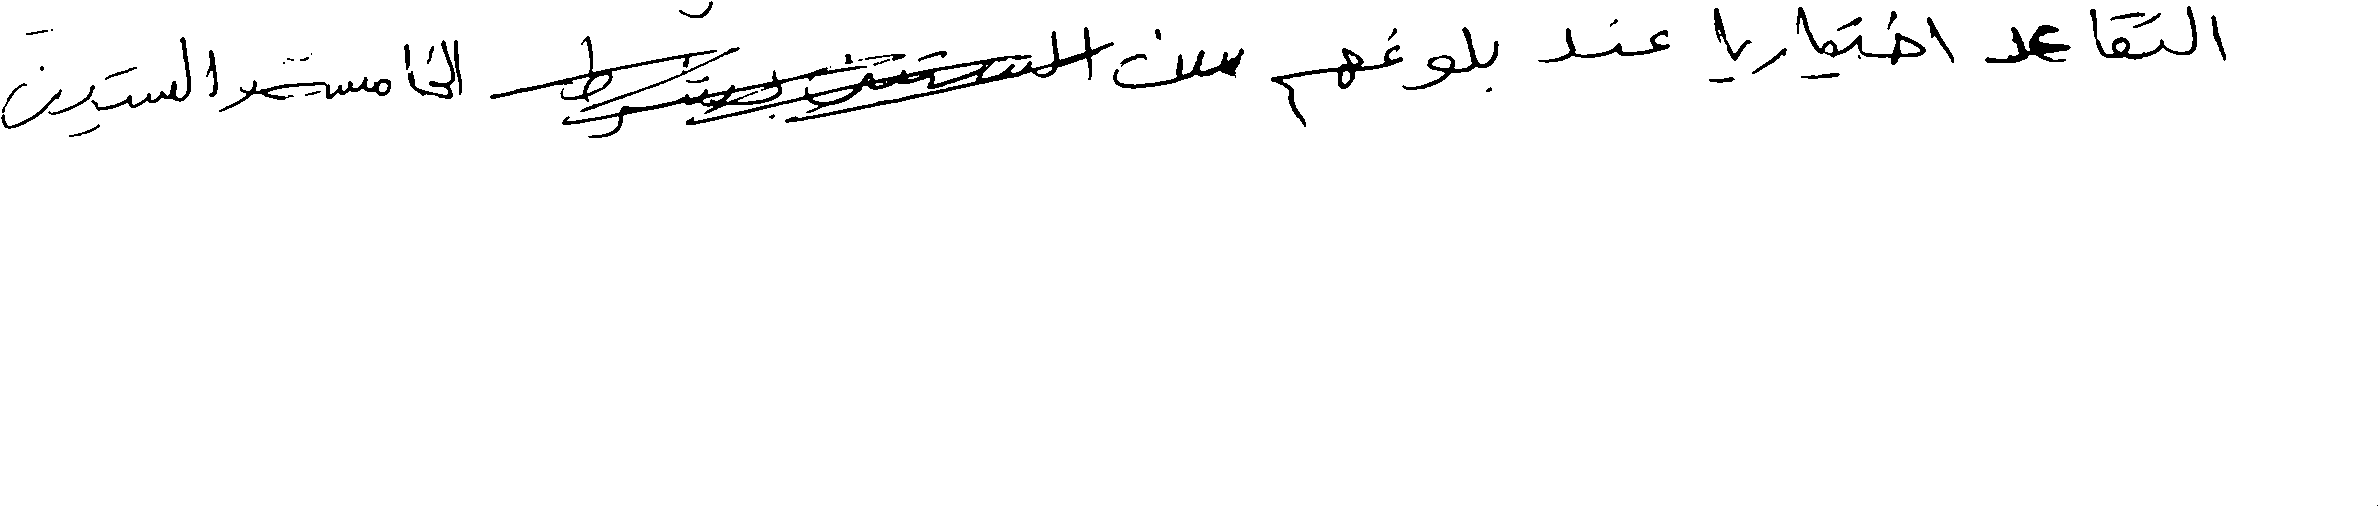 التقاعد اختياريا عند بلوغهم سن الخامسة والستين